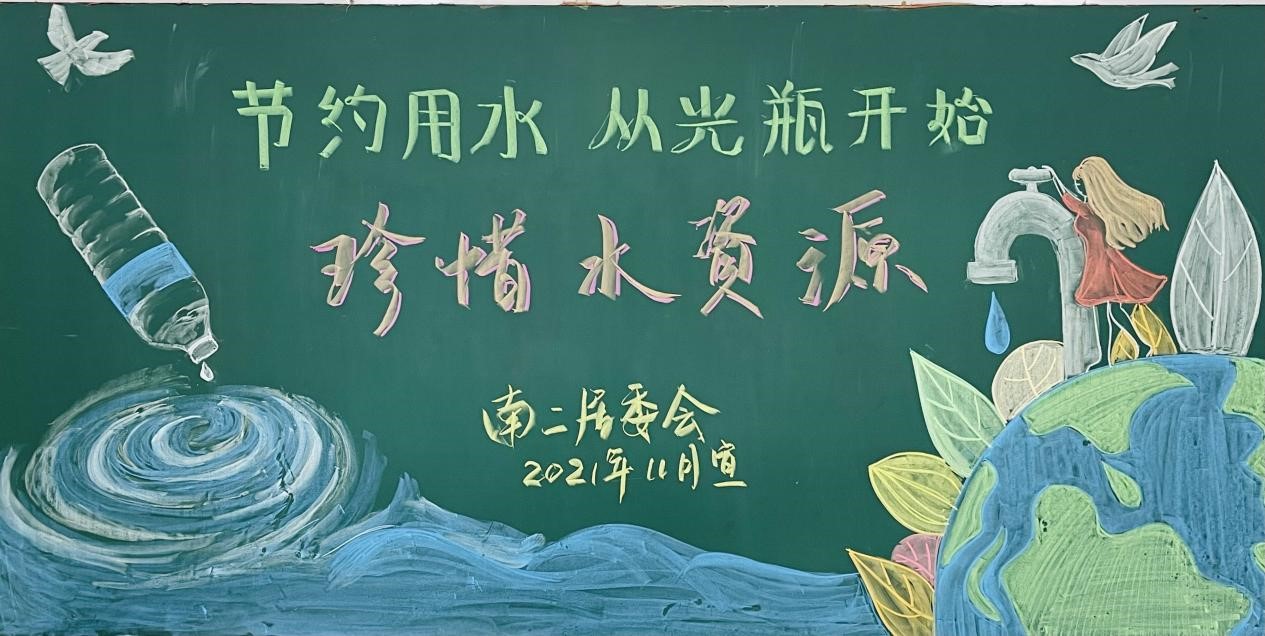 节约用水 从光瓶开始
珍惜水资源
南二居委会
2021年11月宣